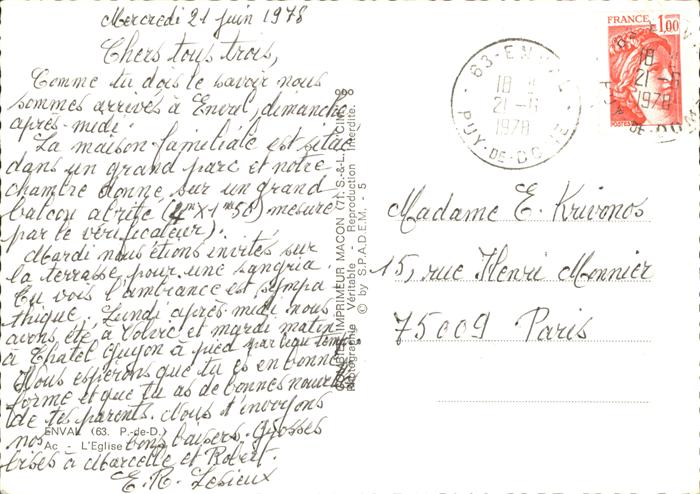 Mercredi 21 juin 1978
Chers tous trois,
Comme tu dois le savoir nous
sommes arrivés à Enval, dimanche
après-midi.
La maison familiale est située
dans un grand parc et notre
chambre donne sur un grand
balcon abrité (4m x 1m50) mesuré
par le vérificateur).
Mardi nous étions invités sur
la terrasse pour une sangria.
Tu vois l'ambiance est sympa
thique. Lundi après-midi nous
avons été à Volvic et mardi matin
à Chatel Guyon à pied par beau temps.
Nous espérons que tu es en bonne
forme et que tu as de bonnes nouvelles
de tes parents. Nous t'envoyons
nos bons baisers. Grosses
bises à Marcelle et Robert.
E. R. Lesieux
ENVAL (63. P.-de-D.)
Ac - L'Eglise
COMBIER IMPRIMEUR MACON (71, S.-&-L.) "CIM"
Photographie Véritable - Reproduction interdite.
© by S.P.A.D.E.M. - 5
FRANCE 1,00
POSTES
63-ENVAL
18 H
21-6
1978
PUY-DE-DOME
18
21-6
1978
Madame E. Krivonos
15, rue Henri Monnier
75009 Paris